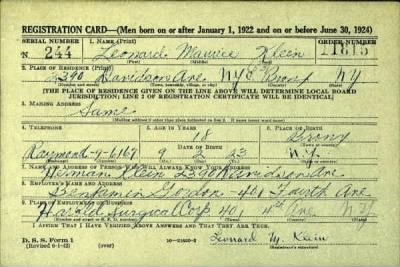 REGISTRATION CARD—(Men born on or after January 1, 1922 and on or before June 30, 1924)
SERIAL NUMBER 1. NAME (Print) ORDER NUMBER
N 244 Leonard Maurice Klein 11815
(First) (Middle) (Last)
2. PLACE OF RESIDENCE (Print)
2390 Davidson Ave N.Y.C. Bronx N.Y.
[THE PLACE OF RESIDENCE GIVEN ON THE LINE ABOVE WILL DETERMINE LOCAL BOARD
JURISDICTION; LINE 2 OF REGISTRATION CERTIFICATE WILL BE IDENTICAL]
3. MAILING ADDRESS
Same
[Mailing address if other than place indicated on line 2. If same insert word same]
4. TELEPHONE 5. AGE IN YEARS 6. PLACE OF BIRTH
18 Bronx
DATE OF BIRTH
Raymond-9-6167 9 2 23 N.Y.
7. NAME AND ADDRESS OF PERSON WHO WILL ALWAYS KNOW YOUR ADDRESS
Herman Klein 2390 Davidson Ave
8. EMPLOYER'S NAME AND ADDRESS
Benjamin Gordon 401 Fourth Ave
9. PLACE OF EMPLOYMENT OR BUSINESS
Harold Surgical Corp. 401 4th Ave N.Y.
I AFFIRM THAT I HAVE VERIFIED ABOVE ANSWERS AND THAT THEY ARE TRUE.
D. S. S. Form 1 Leonard M. Klein
(Revised 6-1-42) (over) (Registrant's signature)